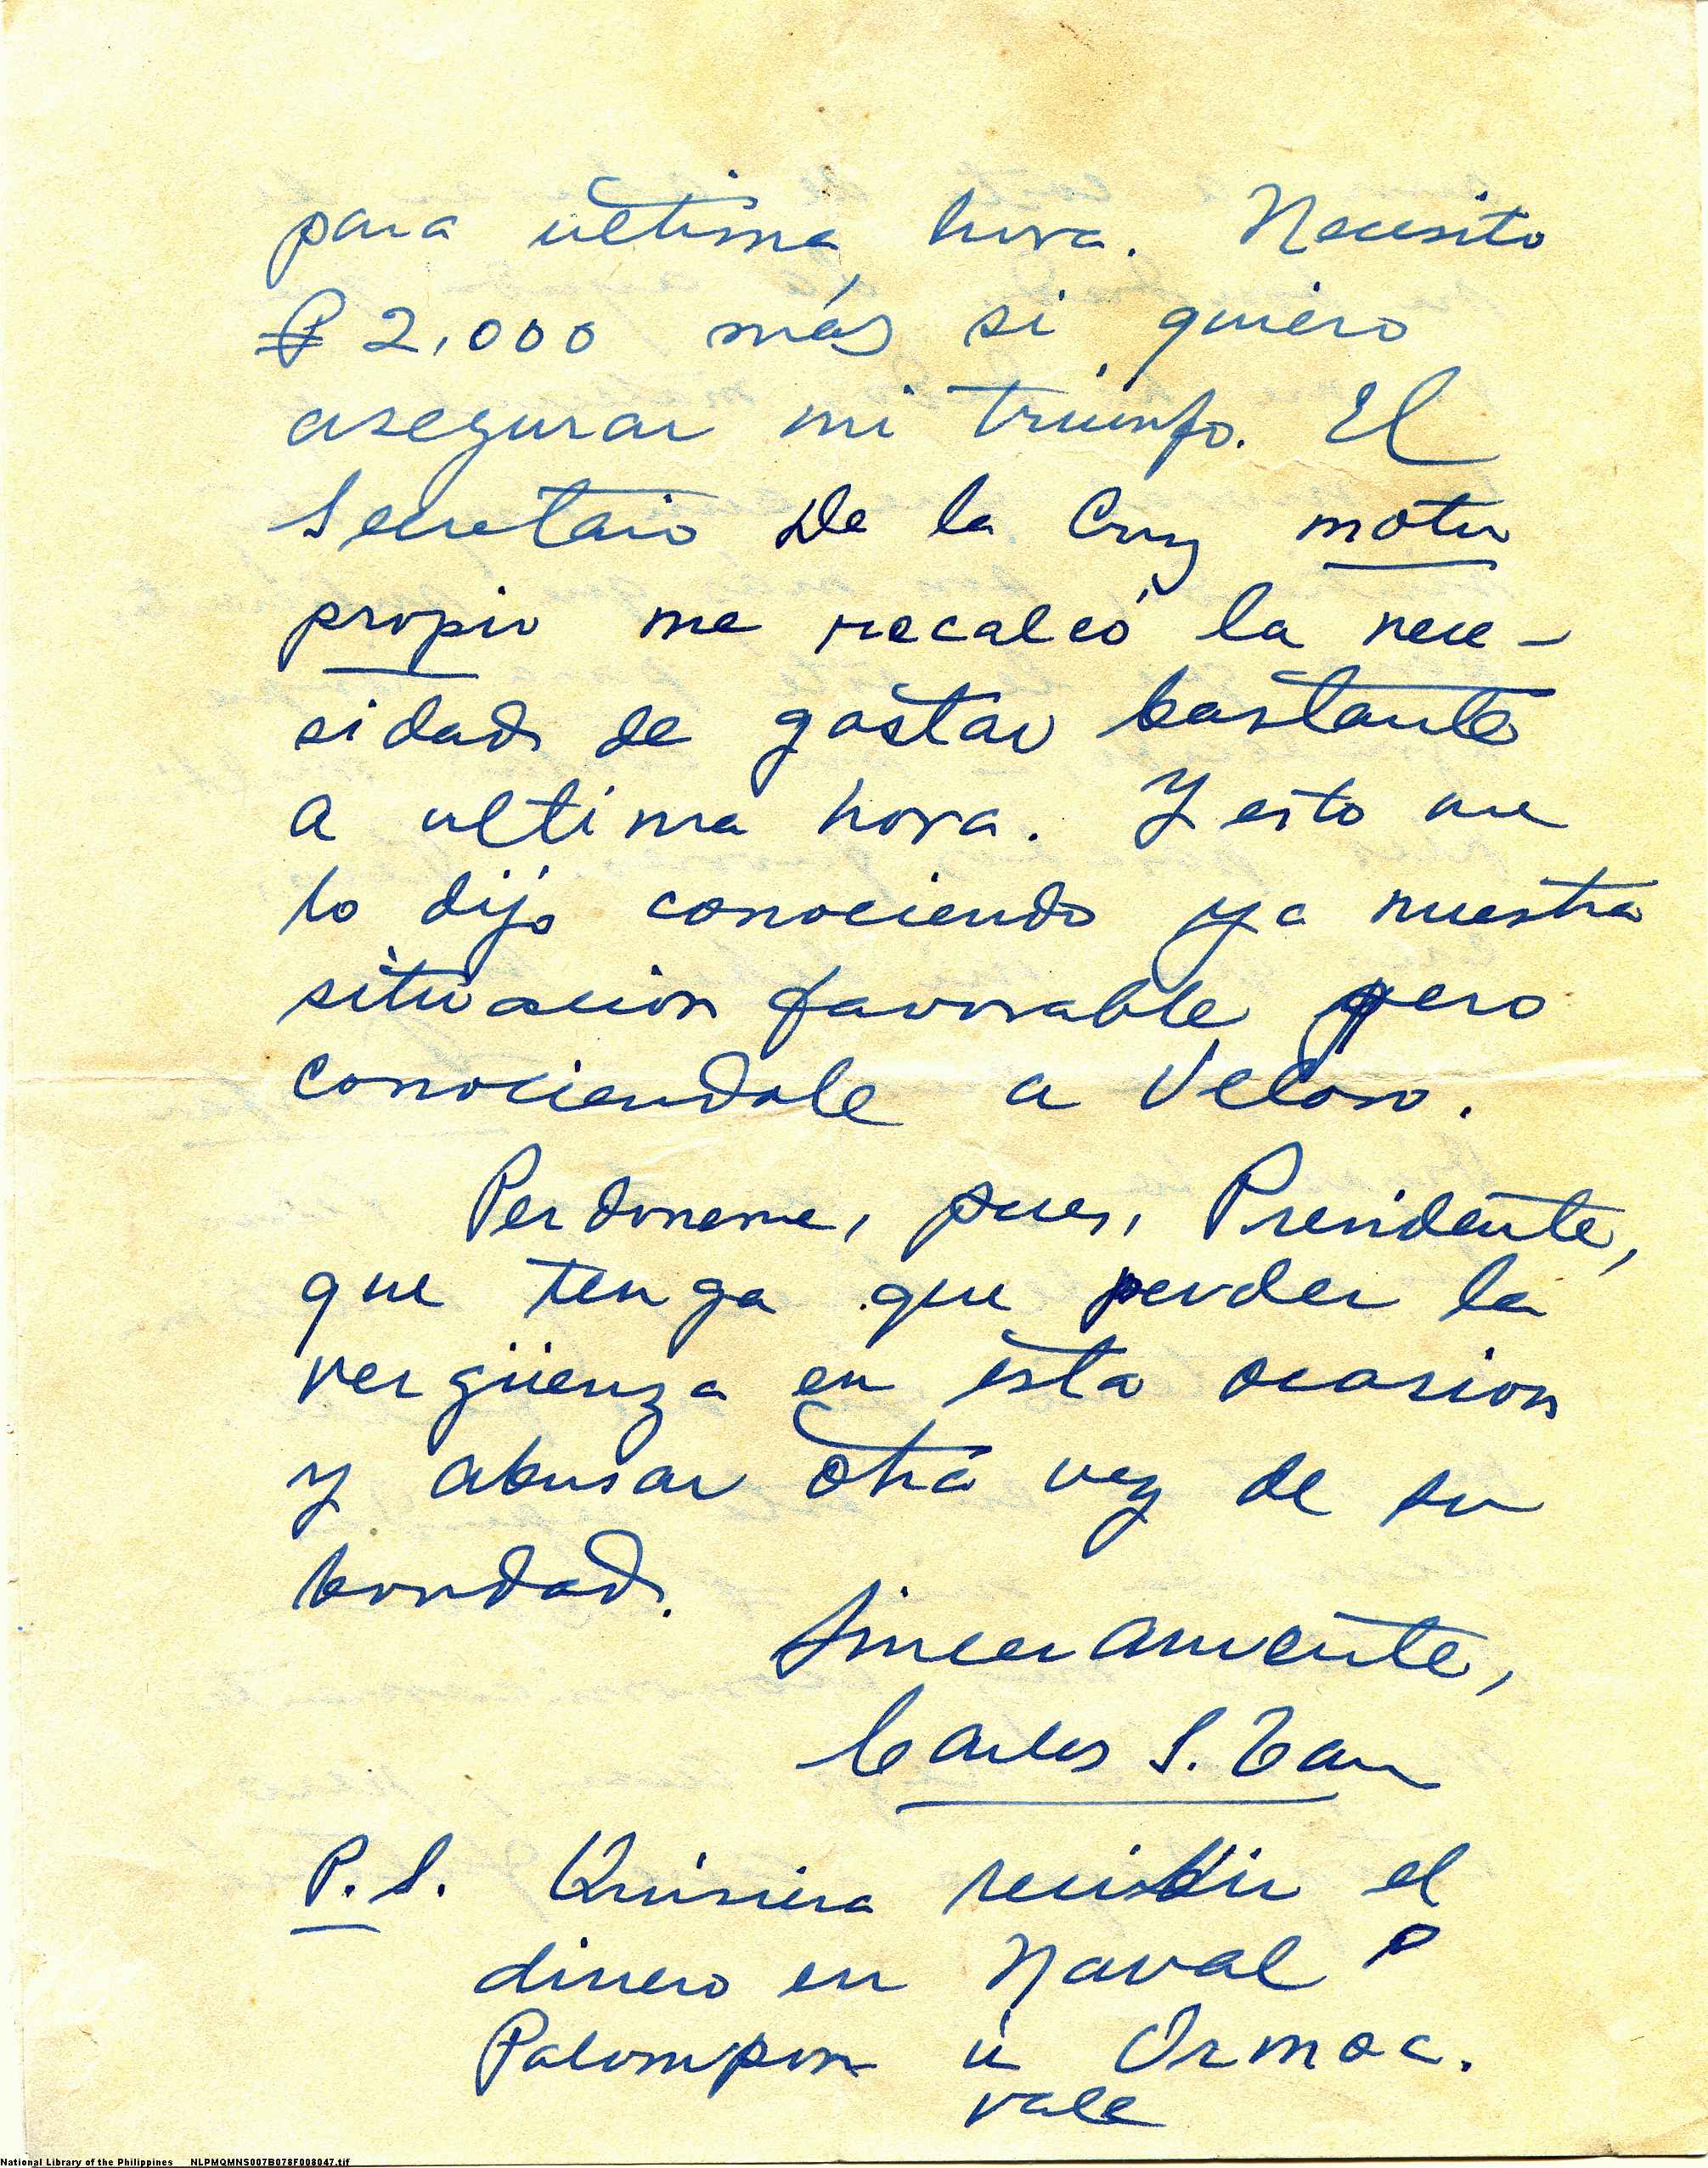 para ultima hora. Necesito
₱ 2,000 más si quiero
asegurar mi triunfo. El
Secretario De la Cruz motu
propio me recalcó la nece-
sidad de gastar bastante
a ultima hora. Y esto me
lo dijo conociendo ya nuestra
situacion favorable pero
conociendole a Veloso.
Perdoneme, pues, Presidente,
que tenga que perder la
vergüenza en esta ocasion
y abusar otra vez de su
bondad.
Sinceramente,
Carlos S. Tan
P.S. Quisiera recibir el
dinero en Naval o
Palompon u Ormoc.
vale
National Library of the Philippines NLPMQMNS007B078F008047.tif